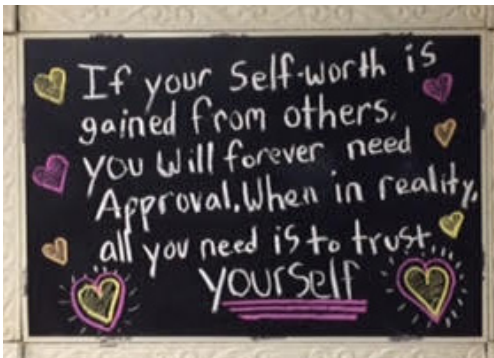 If your Self-worth is
gained from others,
you will forever need
Approval. When in reality,
all you need is to trust
yourself